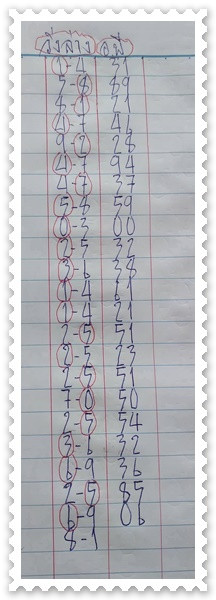 วิ่งล่าง อ.พี
1-4 31
5-8 89
8-1 21
4-7 46
9-2 28
4-7 94
4-7 37
5-8 59
0-3 00
2-5 32
3-6 38
1-4 61
1-4 21
2-5 51
2-5 23
2-5 51
7-0 50
2-5 54
3-6 32
6-9 36
2-5 85
6-9 06
8-1